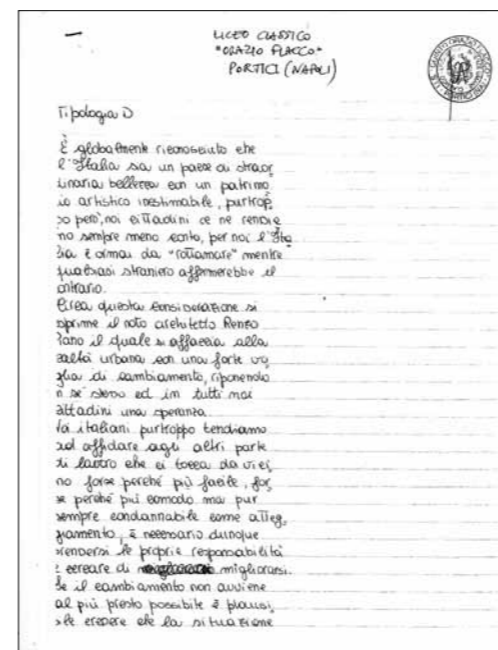 LICEO CLASSICO
"ORAZIO FLACCO"
PORTICI (NAPOLI)
Tipologia D
È globalmente riconosciuto che
l'Italia sia un paese di straor
dinaria bellezza con un patrimo
io artistico inestimabile, purtrop
po però, noi cittadini ce ne rendia
no sempre meno conto, per noi l'Ita
lia è ormai da "rottamare" mentre
qualsiasi straniero affermerebbe il
ontrario.
Circa questa considerazione si
sprime il noto architetto Renzo
iano il quale si affaccia alla
ealtà urbana con una forte vo
glia di cambiamento, riponendo
n sé stesso ed in tutti noi
ittadini una speranza.
oi italiani purtroppo tendiamo
ad affidare agli altri parte
di lavoro che ci tocca da vici,
no forse perché più facile, for
se perché più comodo ma pur
sempre condannabile come atteg,
giamento, è necessario dunque
prendersi le proprie responsabilità
e cercare di migliorarsi.
Se il cambiamento non avviene
al più presto possibile è plausi,
ile credere che la situazione